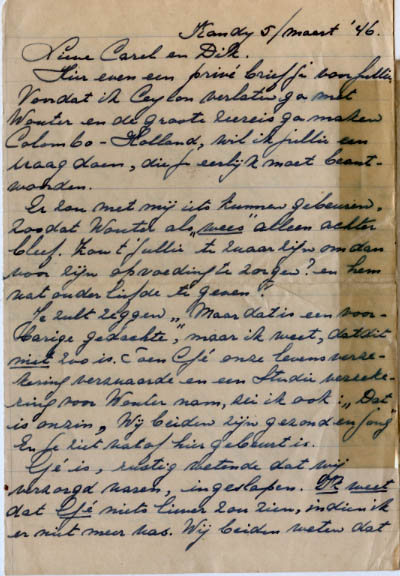 Kandy 5/maart '46.
Lieve Carel en Dik.
Hier even een privé briefje voor jullie
Voordat ik Ceylon verlaten ga met
Wouter en de groote zeereis ga maken
Colombo-Holland, wil ik jullie een
vraag doen, die je eerlijk moet beant-
woorden.
Er zou met mij iets kunnen gebeuren,
zoodat Wouter als „wees” alleen achter
bleef. Zou 't jullie te zwaar zijn om dan
voor zijn opvoeding te zorgen? en hem
wat ouderliefde te geven?
Je zult zeggen „Maar dat is een voor-
barige gedachte”, maar ik weet, dat dit
niet zoo is. Toen Gé onze levensverze-
kering verzwaarde en een Studie verzeke-
ring voor Wouter nam, zei ik ook: „Dat
is onzin, Wij beiden zijn gezond en jong”
En je ziet wat of hier gebeurt is.
Gé is, rustig wetende dat wij
verzorgd waren, ingeslapen. Ik weet
dat Gé niets liever zou zien, indien ik
er niet meer was. Wij beiden weten dat